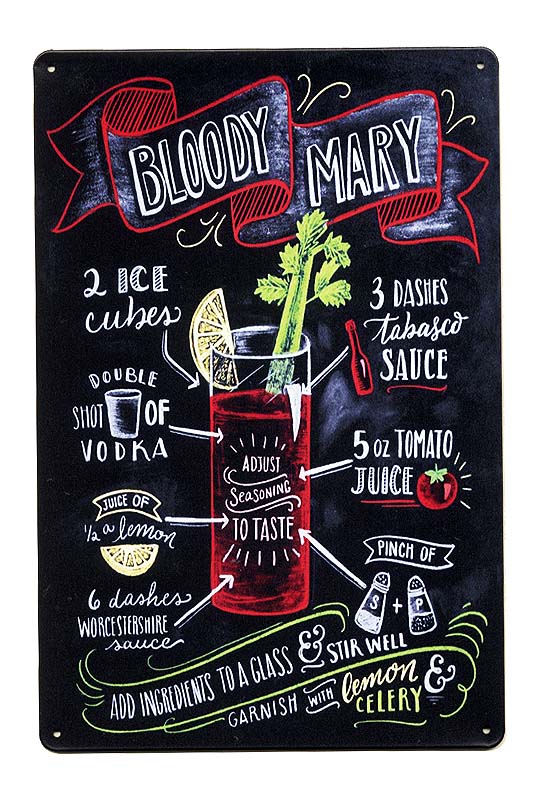 BLOODY MARY
2 ICE
cubes
DOUBLE
SHOT OF
VODKA
JUICE OF
½ a lemon
6 dashes
WORCESTERSHIRE
sauce
3 DASHES
tabasco
SAUCE
5 OZ TOMATO
JUICE
PINCH OF
S + P
ADJUST
Seasoning
TO TASTE
ADD INGREDIENTS TO A GLASS & STIR WELL
GARNISH WITH lemon &
CELERY